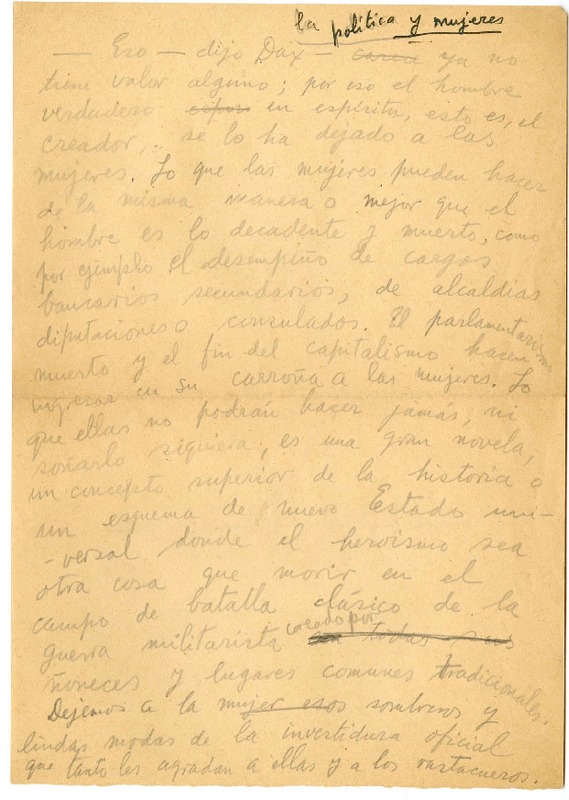 la política y mujeres
— Eso — dijo Dax — ya no
tiene valor alguno; por eso el hombre
verdadero en espíritu, esto es, el
creador, se lo ha dejado a las
mujeres. Lo que las mujeres pueden hacer
de la misma manera o mejor que el
hombre es lo decadente y muerto, como
por ejemplo el desempeño de cargos
bancarios secundarios, de alcaldias
diputaciones o consulados. El parlamentarismo
muerto y el fin del capitalismo hacen
ingresar en su carroña a las mujeres. Lo
que ellas no podrán hacer jamás, ni
soñarlo siquiera, es una gran novela,
un concepto superior de la historia o
un esquema de nuevo Estado uni-
-versal donde el heroismo sea
otra cosa que morir en el
campo de batalla clásico de la
guerra militarista creado por todas sus
ñoñeces y lugares comunes tradicionales.
Dejemos a la mujer esos sombreros y
lindas modas de la investidura oficial
que tanto les agradan a ellas y a los rastacueros.